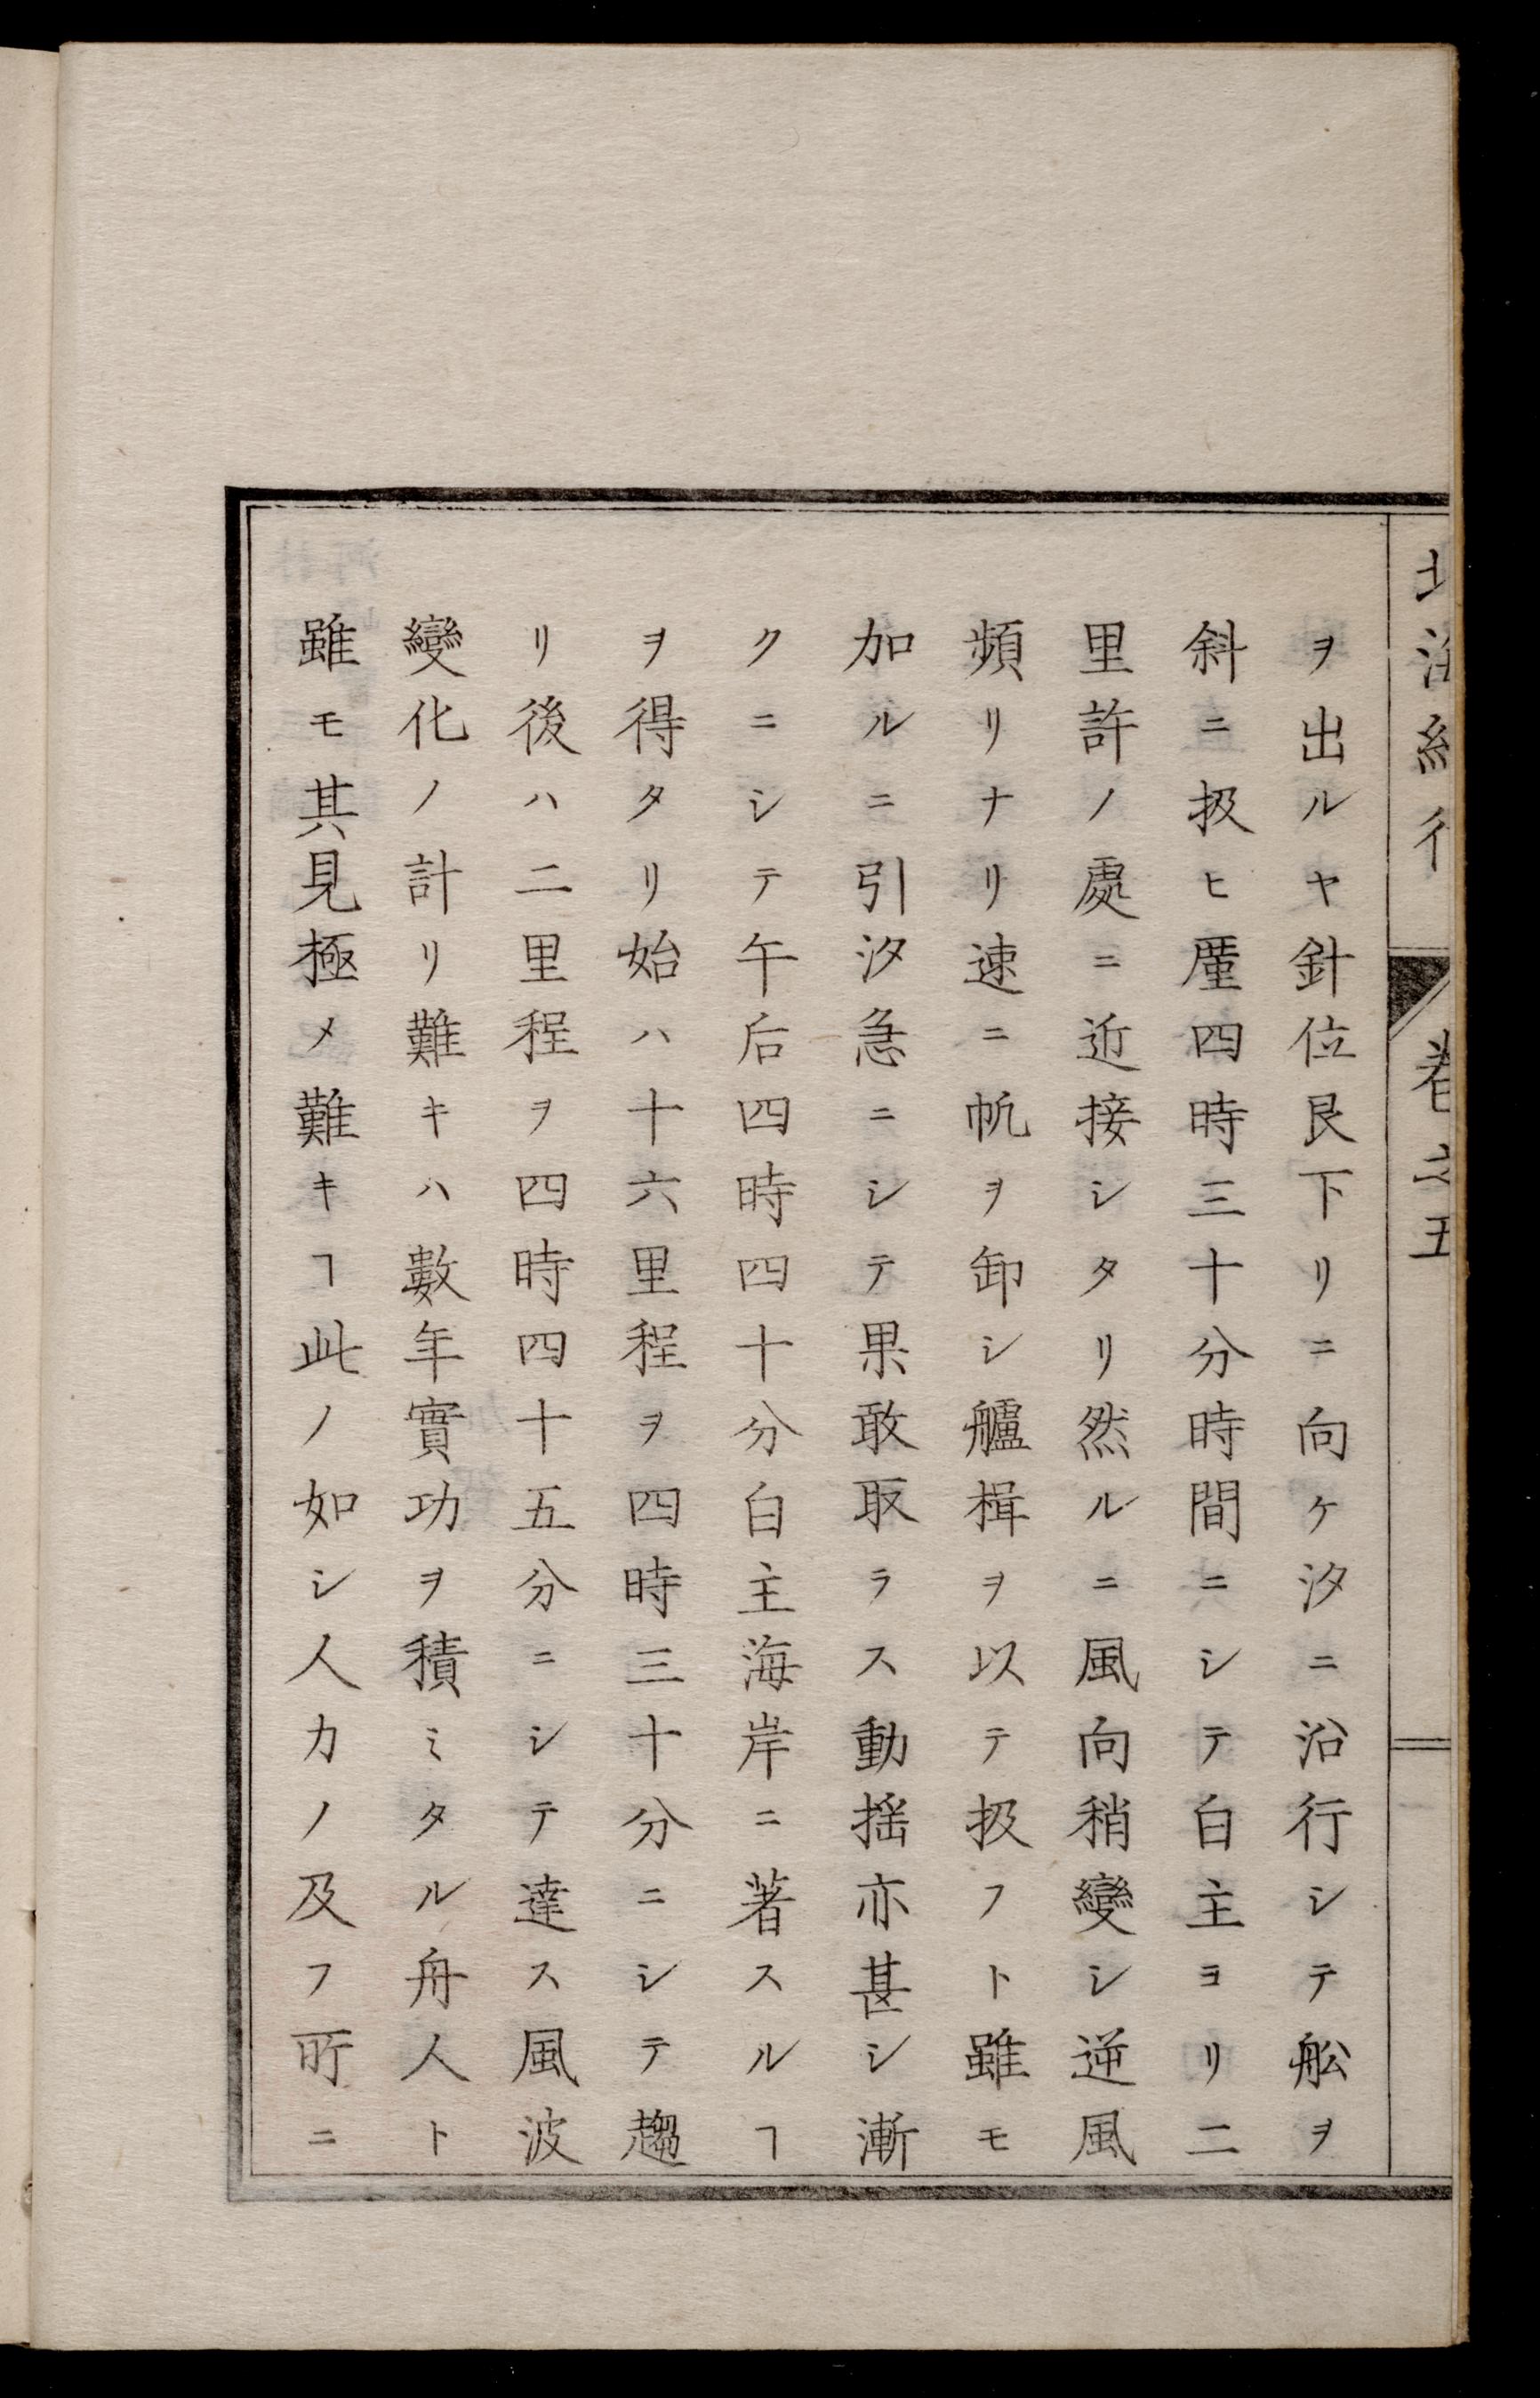 北海紀行 卷之五
ヲ出ルヤ針位艮下リニ向ケ汐ニ沿行シテ舩ヲ
斜ニ扱ヒ㕓四時三十分時間ニシテ白主ヨリ二
里許ノ處ニ近接シタリ然ルニ風向稍變シ逆風
頻リナリ速ニ帆ヲ卸シ艫楫ヲ以テ扱フト雖モ
加ルニ引汐急ニシテ果敢取ラス動揺亦甚シ漸
クニシテ午后四時四十分白主海岸ニ著スルヿ
ヲ得タリ始ハ十六里程ヲ四時三十分ニシテ趨
リ後ハ二里程ヲ四時四十五分ニシテ達ス風波
變化ノ計リ難キハ數年實功ヲ積ミタル舟人ト
雖モ其見極メ難キヿ此ノ如シ人力ノ及フ所ニ